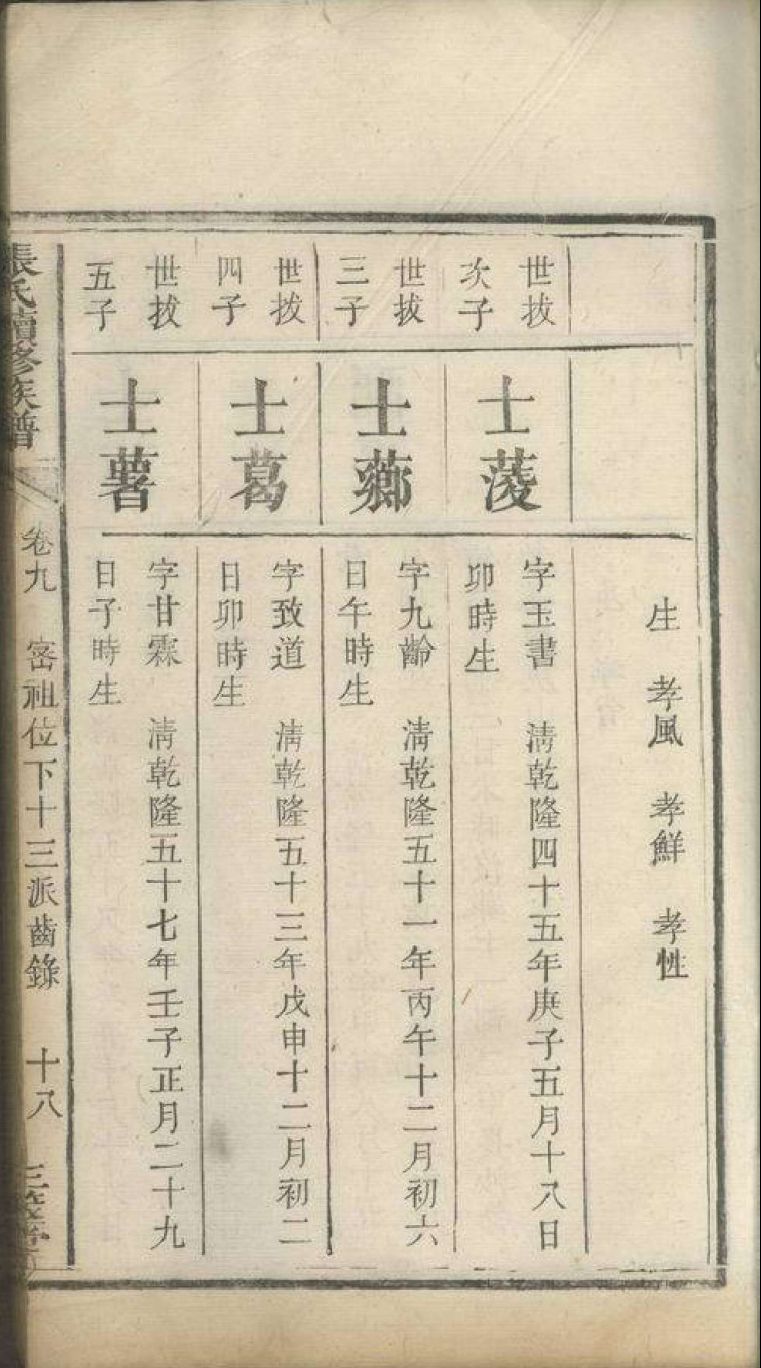 生 孝風 孝鮮 孝性
世拔
次子
士蔆
字玉書 淸乾隆四十五年庚子五月十八日
卯時生
世拔
三子
士薌
字九齡 淸乾隆五十一年丙午十二月初六
日午時生
世拔
四子
士葛
字致道 淸乾隆五十三年戊申十二月初二
日卯時生
世拔
五子
士薯
字甘霖 淸乾隆五十七年壬子正月二十九
日子時生
張氏續修族譜 卷九 密祖位下十三派齒錄 十八 三